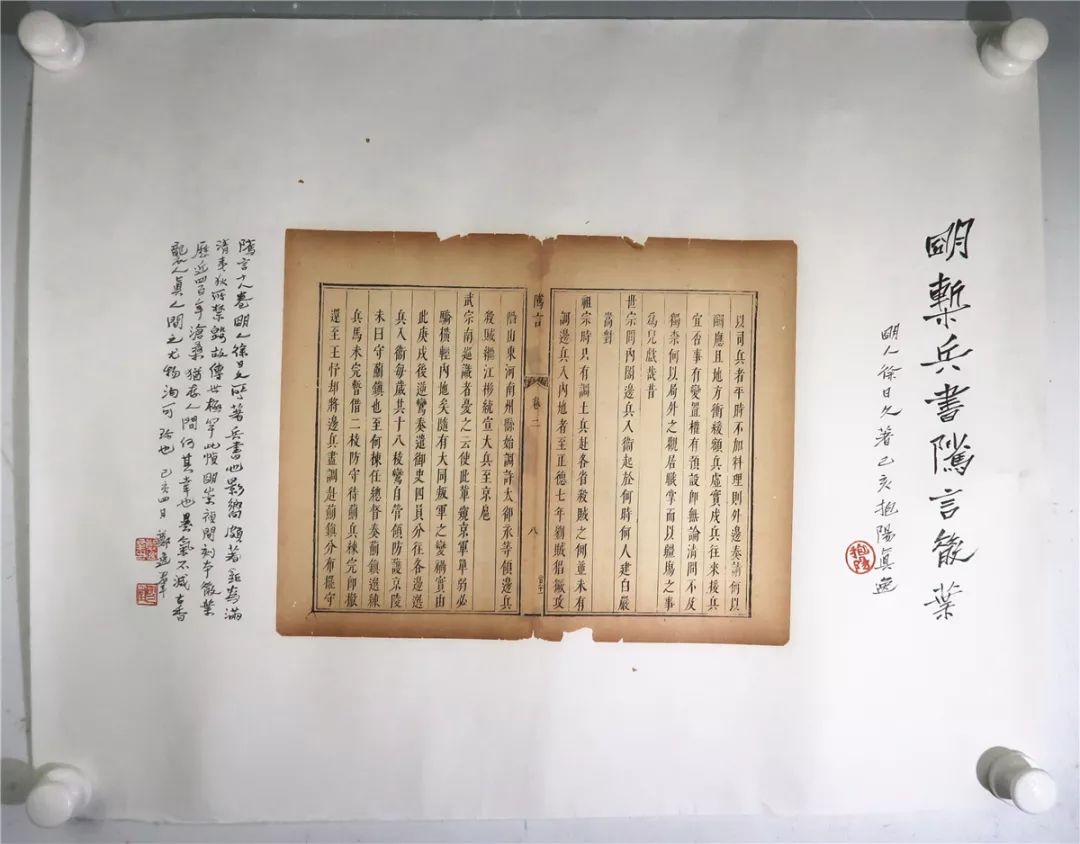 明槧兵書隲言散葉
明人徐日久著己亥抱陽真逸
抱陽
以司兵者平時不加料理則外邊奏請何以
酬應且地方衝緩額兵虛實戍兵往來接兵
宜否事有變置權有預設即無論清問不及
獨柰何以局外之觀居職掌而以疆場之事
為兒戲哉昔
世宗問內閣邊兵入衛起於何時何人建白嚴
嵩對
祖宗時只有調土兵赴各省殺賊之例並未有
調邊兵入內地者至正德七年劉賊猖獗攻
隲言
卷二
八
陷山東河南州縣始調許太郤永等領邊兵
殺賊繼江彬統宣大兵至京扈
武宗南巡識者憂之云使此輩窺京軍單弱必
驕橫輕內地矣隨有大同叛軍之變禍實由
此庚戌後逆鸞奏遣御史四員分往各邊選
兵入衛每歲共十八枝鸞自管領防護京陵
未曰守薊鎮也至何棟任總督奏薊鎮邊練
兵馬未完暫借二枝防守待薊兵練完即撤
還至王忬却將邊兵盡調赴薊鎮分布擺守
隲言十八卷明人徐日久所著兵書也影響頗著鉅為滿
清夷狄所禁毀故傳世極罕此頁明崇禎間刻本散葉
歷近四百年滄桑猶存人間何其幸也墨氣不減古香
襲人真人間之尤物洵可珍也 己亥四月 鄭逸羣